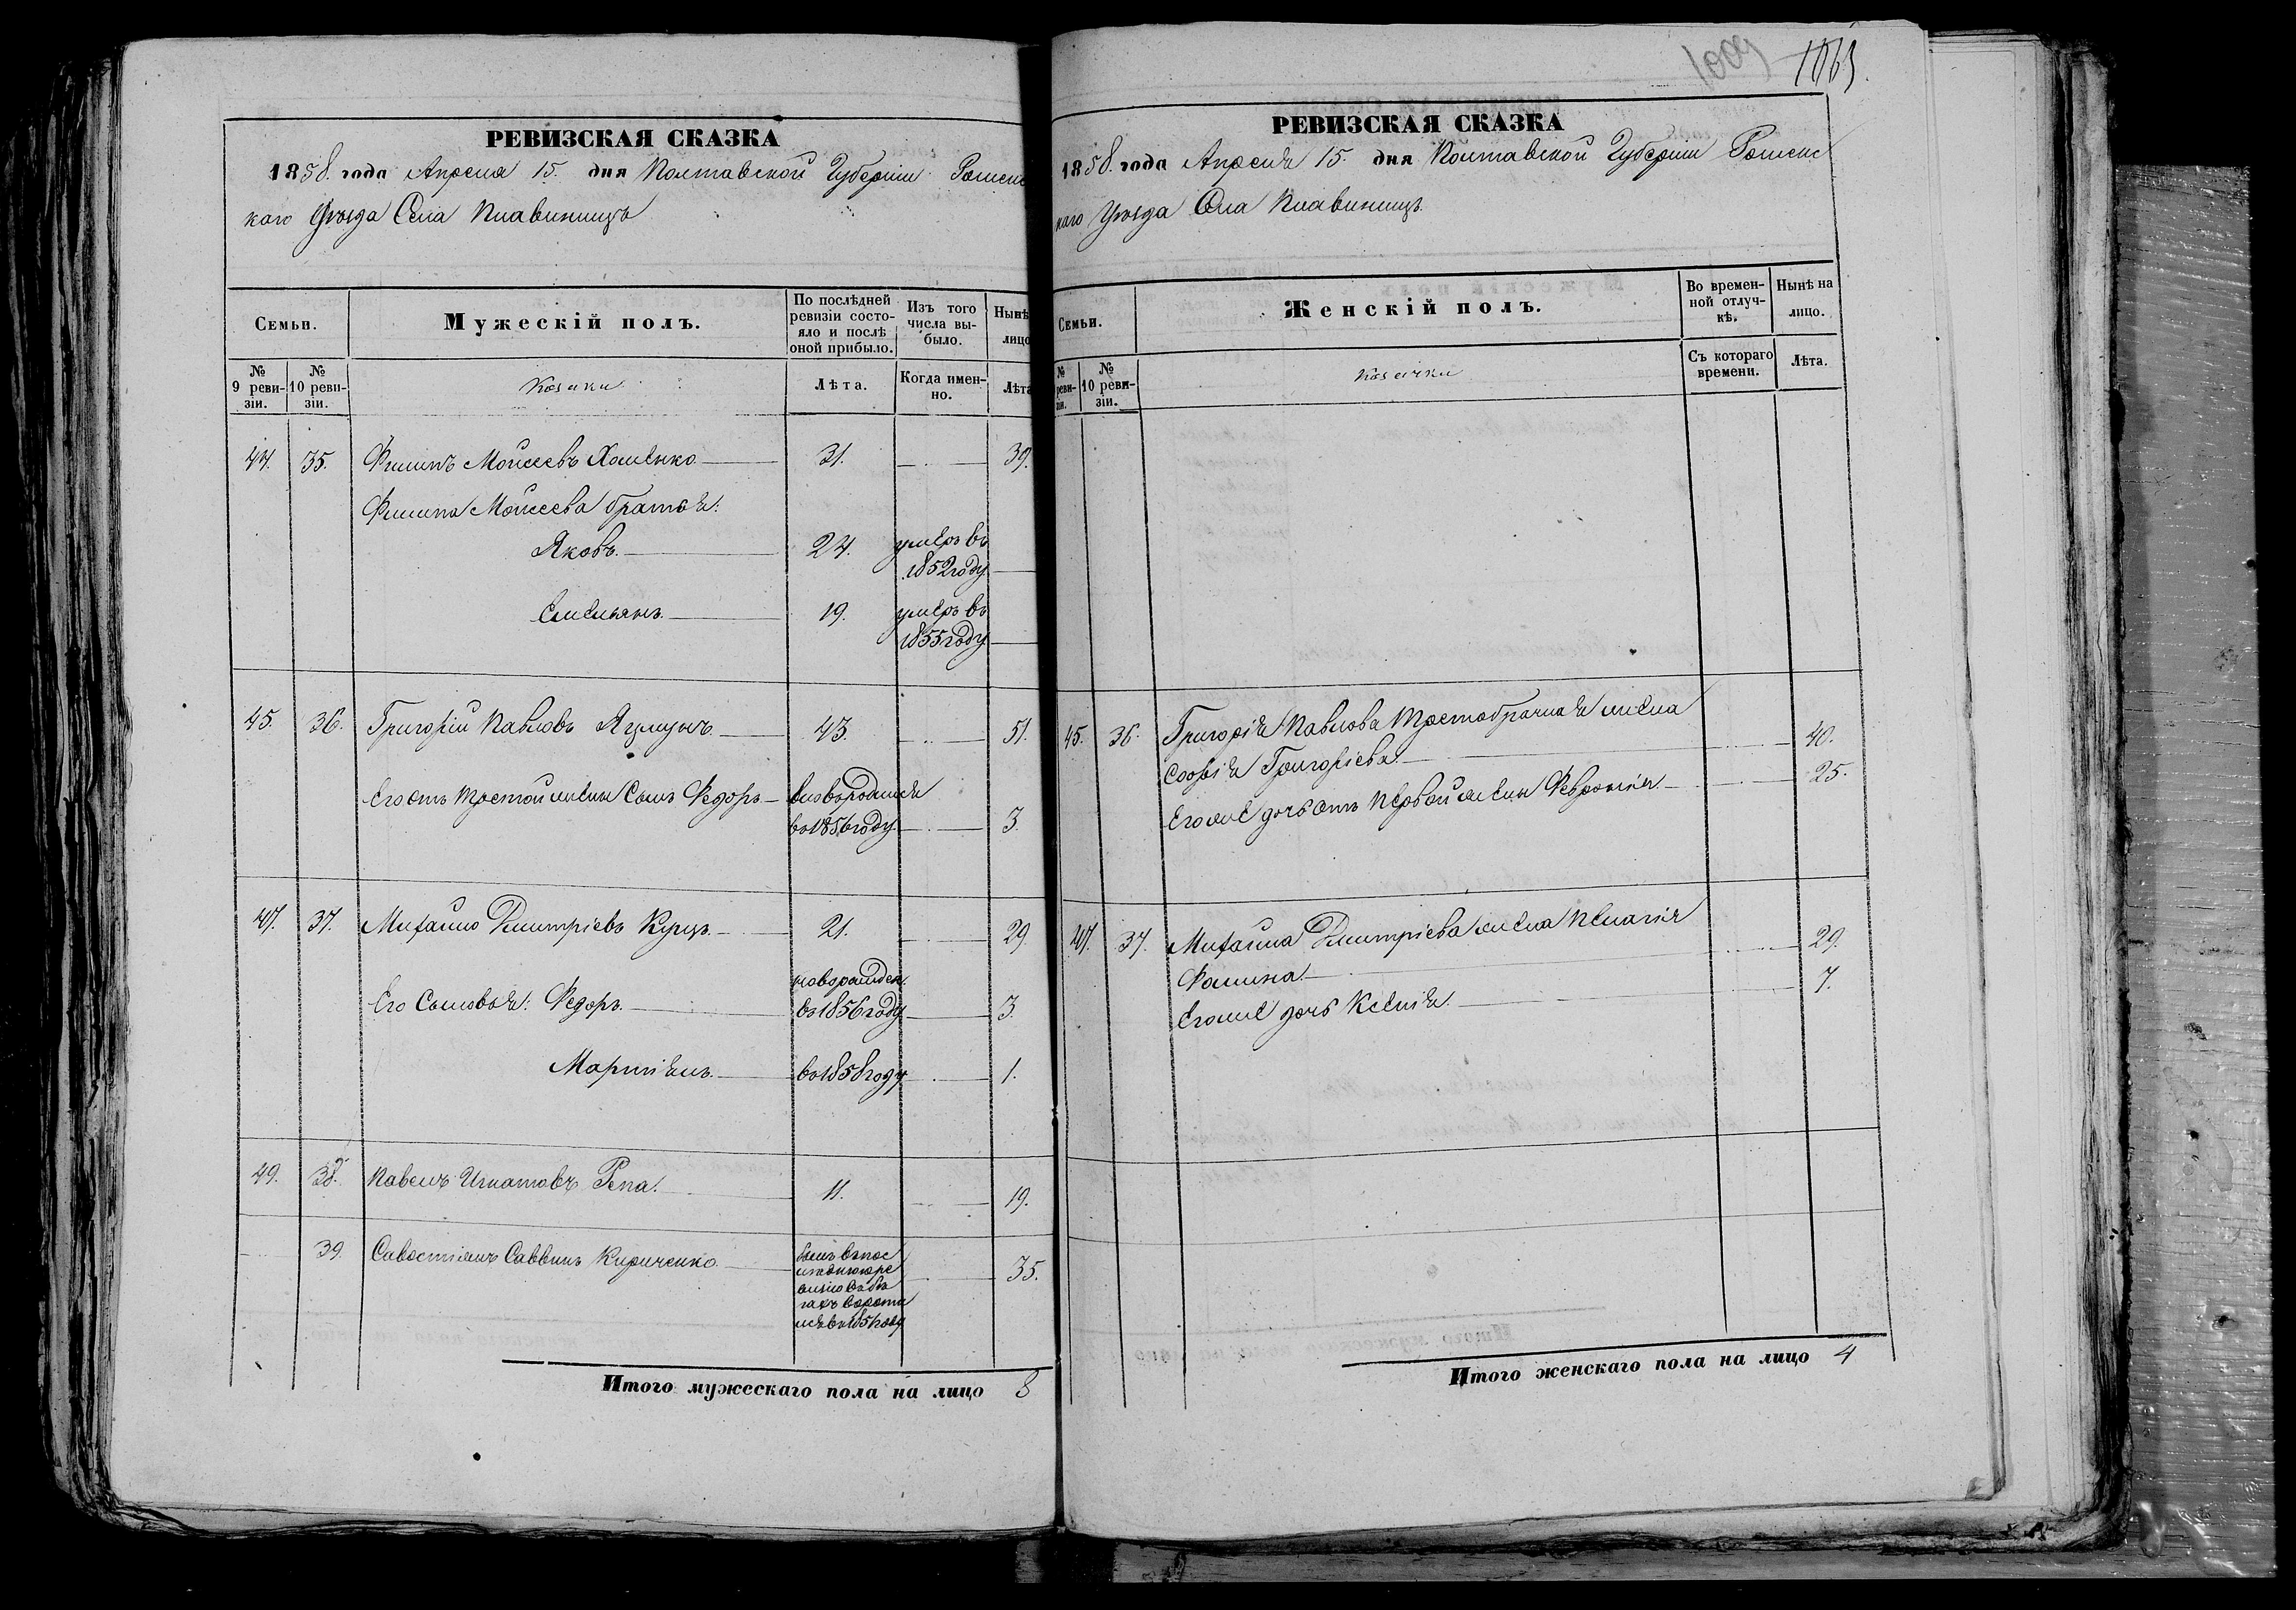 РЕВИЗСКАЯ СКАЗКА
1858. года Апреля 15. дня Полтавской Губерніи Роменс
каго Уѣзда Села Плавинищъ
Семьи.
Мужескій полъ.
По послѣдней ревизіи состояло и послѣ оной прибыло.
Изъ того числа выбыло.
Нынѣ
лицо
№ 9 ревизіи.
№ 10 ревизіи.
Козаки
Лѣта.
Когда именно.
Лѣта
44. 35. Филипъ Моисеевъ Хоменко 31. 39.
Филипа Моисеева братья:
Яковъ. 24. умеръ въ
1852 году
Емельянъ. 19. умеръ въ
1855 году
45. 36. Григорій Павловъ 43. 51.
Его отъ третой жены Сынъ Федоръ
въ 1856 году. 3.
47. 37. Михайло Дмитріевъ Куцъ. 21. 29.
новорожден.
Его Сыновья: Федоръ. въ 1856 году 3.
Мартіянъ. въ 1858 году 1.
49. 38. Павелъ Игнатовъ Репа. 11. 19.
39. Савостіянъ Саввинъ Кириченко. 35.
былъ въ пос
леднюю ре
визію въ бе
гахъ
Итого мужескаго пола на лицо 8
1009
РЕВИЗСКАЯ СКАЗКА
1858. года Апреля 15. дня Полтавской Губерніи Роменс
каго Уѣзда Села Плавинищъ.
Семьи.
Женскій полъ.
Во временной отлучкѣ.
Нынѣ на лицо.
№ реви-зіи.
№ 10 ревизіи.
Козачки
Съ котораго времени.
Лѣта.
45. 36. Григорія Павлова третобрачная жена
Софія Григоріева. 40.
Егоже дочь отъ первой жены Февронія. 25.
47. 37. Михайла Дмитріева жена Пелагія
Фомина. 29.
Егоже дочь Ксенія. 7.
Итого женскаго пола на лицо 4